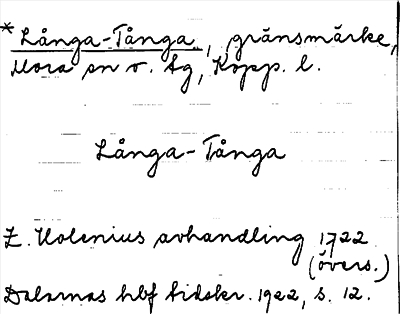 *Långa-Tånga, gränsmärke,
Mora sn o. tg, Kopp. l.
Långa-Tånga
Z. Holenius avhandling 1722
(övers.)
Dalarnas hbf tidskr. 1922, s. 12.